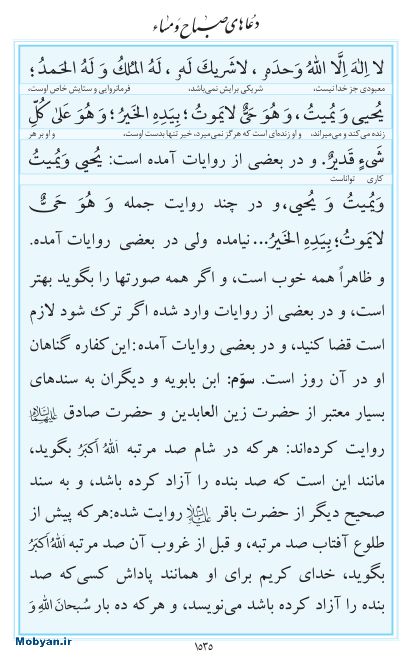 دعاهای صباح و مساء
لا اِلٰهَ اِلَّا اللهُ وَحدَهٗ ، لاشَریكَ لَهٗ ، لَهُ المُلكُ وَ لَهُ الحَمدُ؛
معبودی جز خدا نیست، شریکی برایش نمی‌باشد، فرمانروایی و ستایش خاص اوست،
یُحیی وَ یُمیتُ، وَ هُوَ حَیٌّ لایَموتُ؛ بِیَدِهِ الخَیرُ؛ وَ هُوَ عَلیٰ کُلِّ
زنده می‌کند و می‌میراند، و او زنده‌ای است که هرگز نمی‌میرد، خیر تنها بدست اوست، و او بر هر
شَیءٍ قَدیرٌ. و در بعضی از روایات آمده است: یُحیی وَ یُمیتُ
کاری تواناست
وَ یُمیتُ وَ یُحیی، و در چند روایت جمله وَ هُوَ حَیٌّ
لایَموتُ؛ بِیَدِهِ الخَیرُ... نیامده ولی در بعضی روایات آمده.
و ظاهراً همه خوب است، و اگر همه صورتها را بگوید بهتر
است، و در بعضی از روایات وارد شده اگر ترك شود لازم
است قضا کنید، و در بعضی روایات آمده: این کفاره گناهان
او در آن روز است. سوّم: ابن بابویه و دیگران به سندهای
بسیار معتبر از حضرت زین العابدین و حضرت صادق علیهماالسلام
روایت کرده‌اند: هرکه در شام صد مرتبه اَللهُ اَکبَرُ بگوید،
مانند این است که صد بنده را آزاد کرده باشد، و به سند
صحیح دیگر از حضرت باقر علیه‌السلام روایت شده: هرکه پیش از
طلوع آفتاب صد مرتبه، و قبل از غروب آن صد مرتبه اَللهُ اَکبَرُ
بگوید، خدای کریم برای او همانند پاداش کسی‌که صد
بنده را آزاد کرده باشد می‌نویسد، و هرکه ده بار سُبحانَ اللهِ وَ
Mobyan.ir
۱۵۳۵